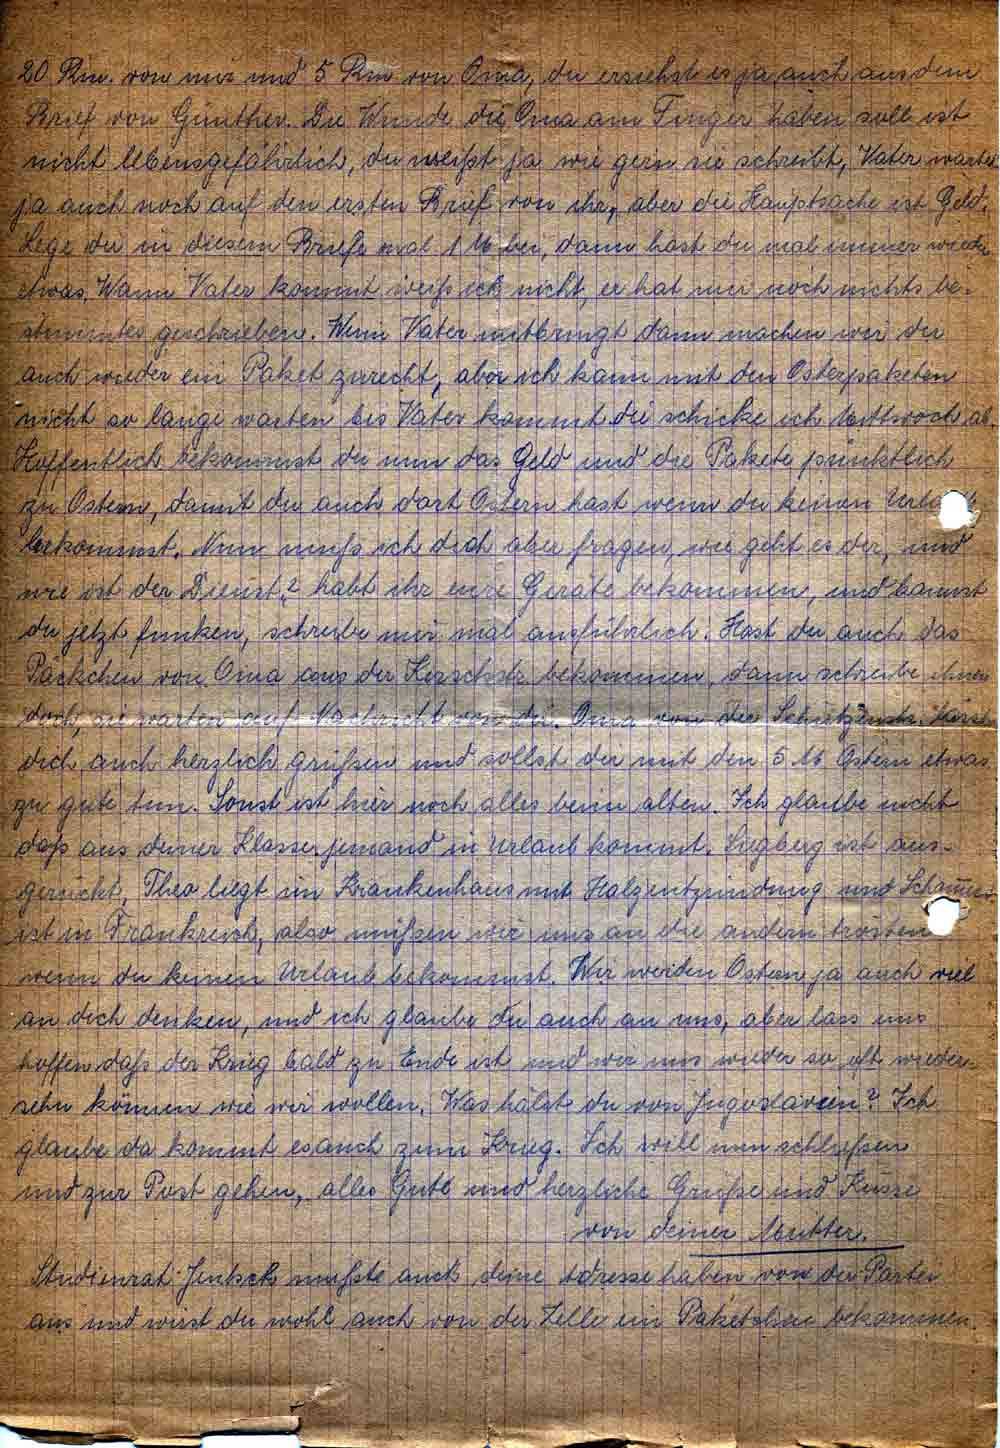 20 Rm. von mir und 5 Rm von Oma, du ersiehst es ja auch aus dem
Brief von Günther. Die Wunde die Oma am Finger haben soll ist
nicht lebensgefährlich, du weißt ja wie gern sie schreibt, Vater wartet
ja auch noch auf den ersten Brief von ihr, aber die Hauptsache ist Geld.
Lege du in diesem Briefe mal 1 M bei, dann hast du mal immer wieder
etwas. Wann Vater kommt weiß ich nicht, er hat mir noch nichts be-
stimmtes geschrieben. Wenn Vater mitbringt dann machen wir dir
auch wieder ein Paket zurecht, aber ich kann mit den Osterpaketen
nicht so lange warten bis Vater kommt die schicke ich Mittwoch ab.
Hoffentlich bekommst du nun das Geld und die Pakete pünktlich
zu Ostern, damit du auch dort Ostern hast wenn du keinen Urlaub
bekommst. Nun muß ich dich aber fragen, wie geht es dir, und
wie ist der Dienst? habt ihr eure Geräte bekommen, und kannst
du jetzt funken, schreibe mir mal ausführlich. Hast du auch das
Päckchen von Oma aus der bekommen, dann schreibe ihnen
doch, sie warten auf Nachricht von dir. Oma von der Schützenstr. lässt
dich auch herzlich grüßen und sollst dir mit den 5 M Ostern etwas
zu gute tun. Sonst ist hier noch alles beim alten. Ich glaube nicht
daß aus deiner Klasse jemand in Urlaub kommt. Siegberg ist aus-
gerückt, Theo liegt im Krankenhaus mit Halzentzündung und
ist in Frankreich, also müßen wir uns an die andern trösten
wenn du keinen Urlaub bekommst. Wir werden Ostern ja auch viel
an dich denken, und ich glaube du auch an uns, aber lass uns
hoffen daß der Krieg bald zu Ende ist und wir uns wieder so oft wieder-
sehn können wie wir wollen. Was hälst du von Jugoslavien? Ich
glaube da kommt es auch zum Krieg. Ich will nun schließen
und zur Post gehen, alles Gute und herzliche Grüße und Küsse
von deiner Mutter.
Studienrat Jentsch mußte auch deine Adresse haben von der Partei
aus und wirst du wohl auch von der Zelle ein Paketchen bekommen.